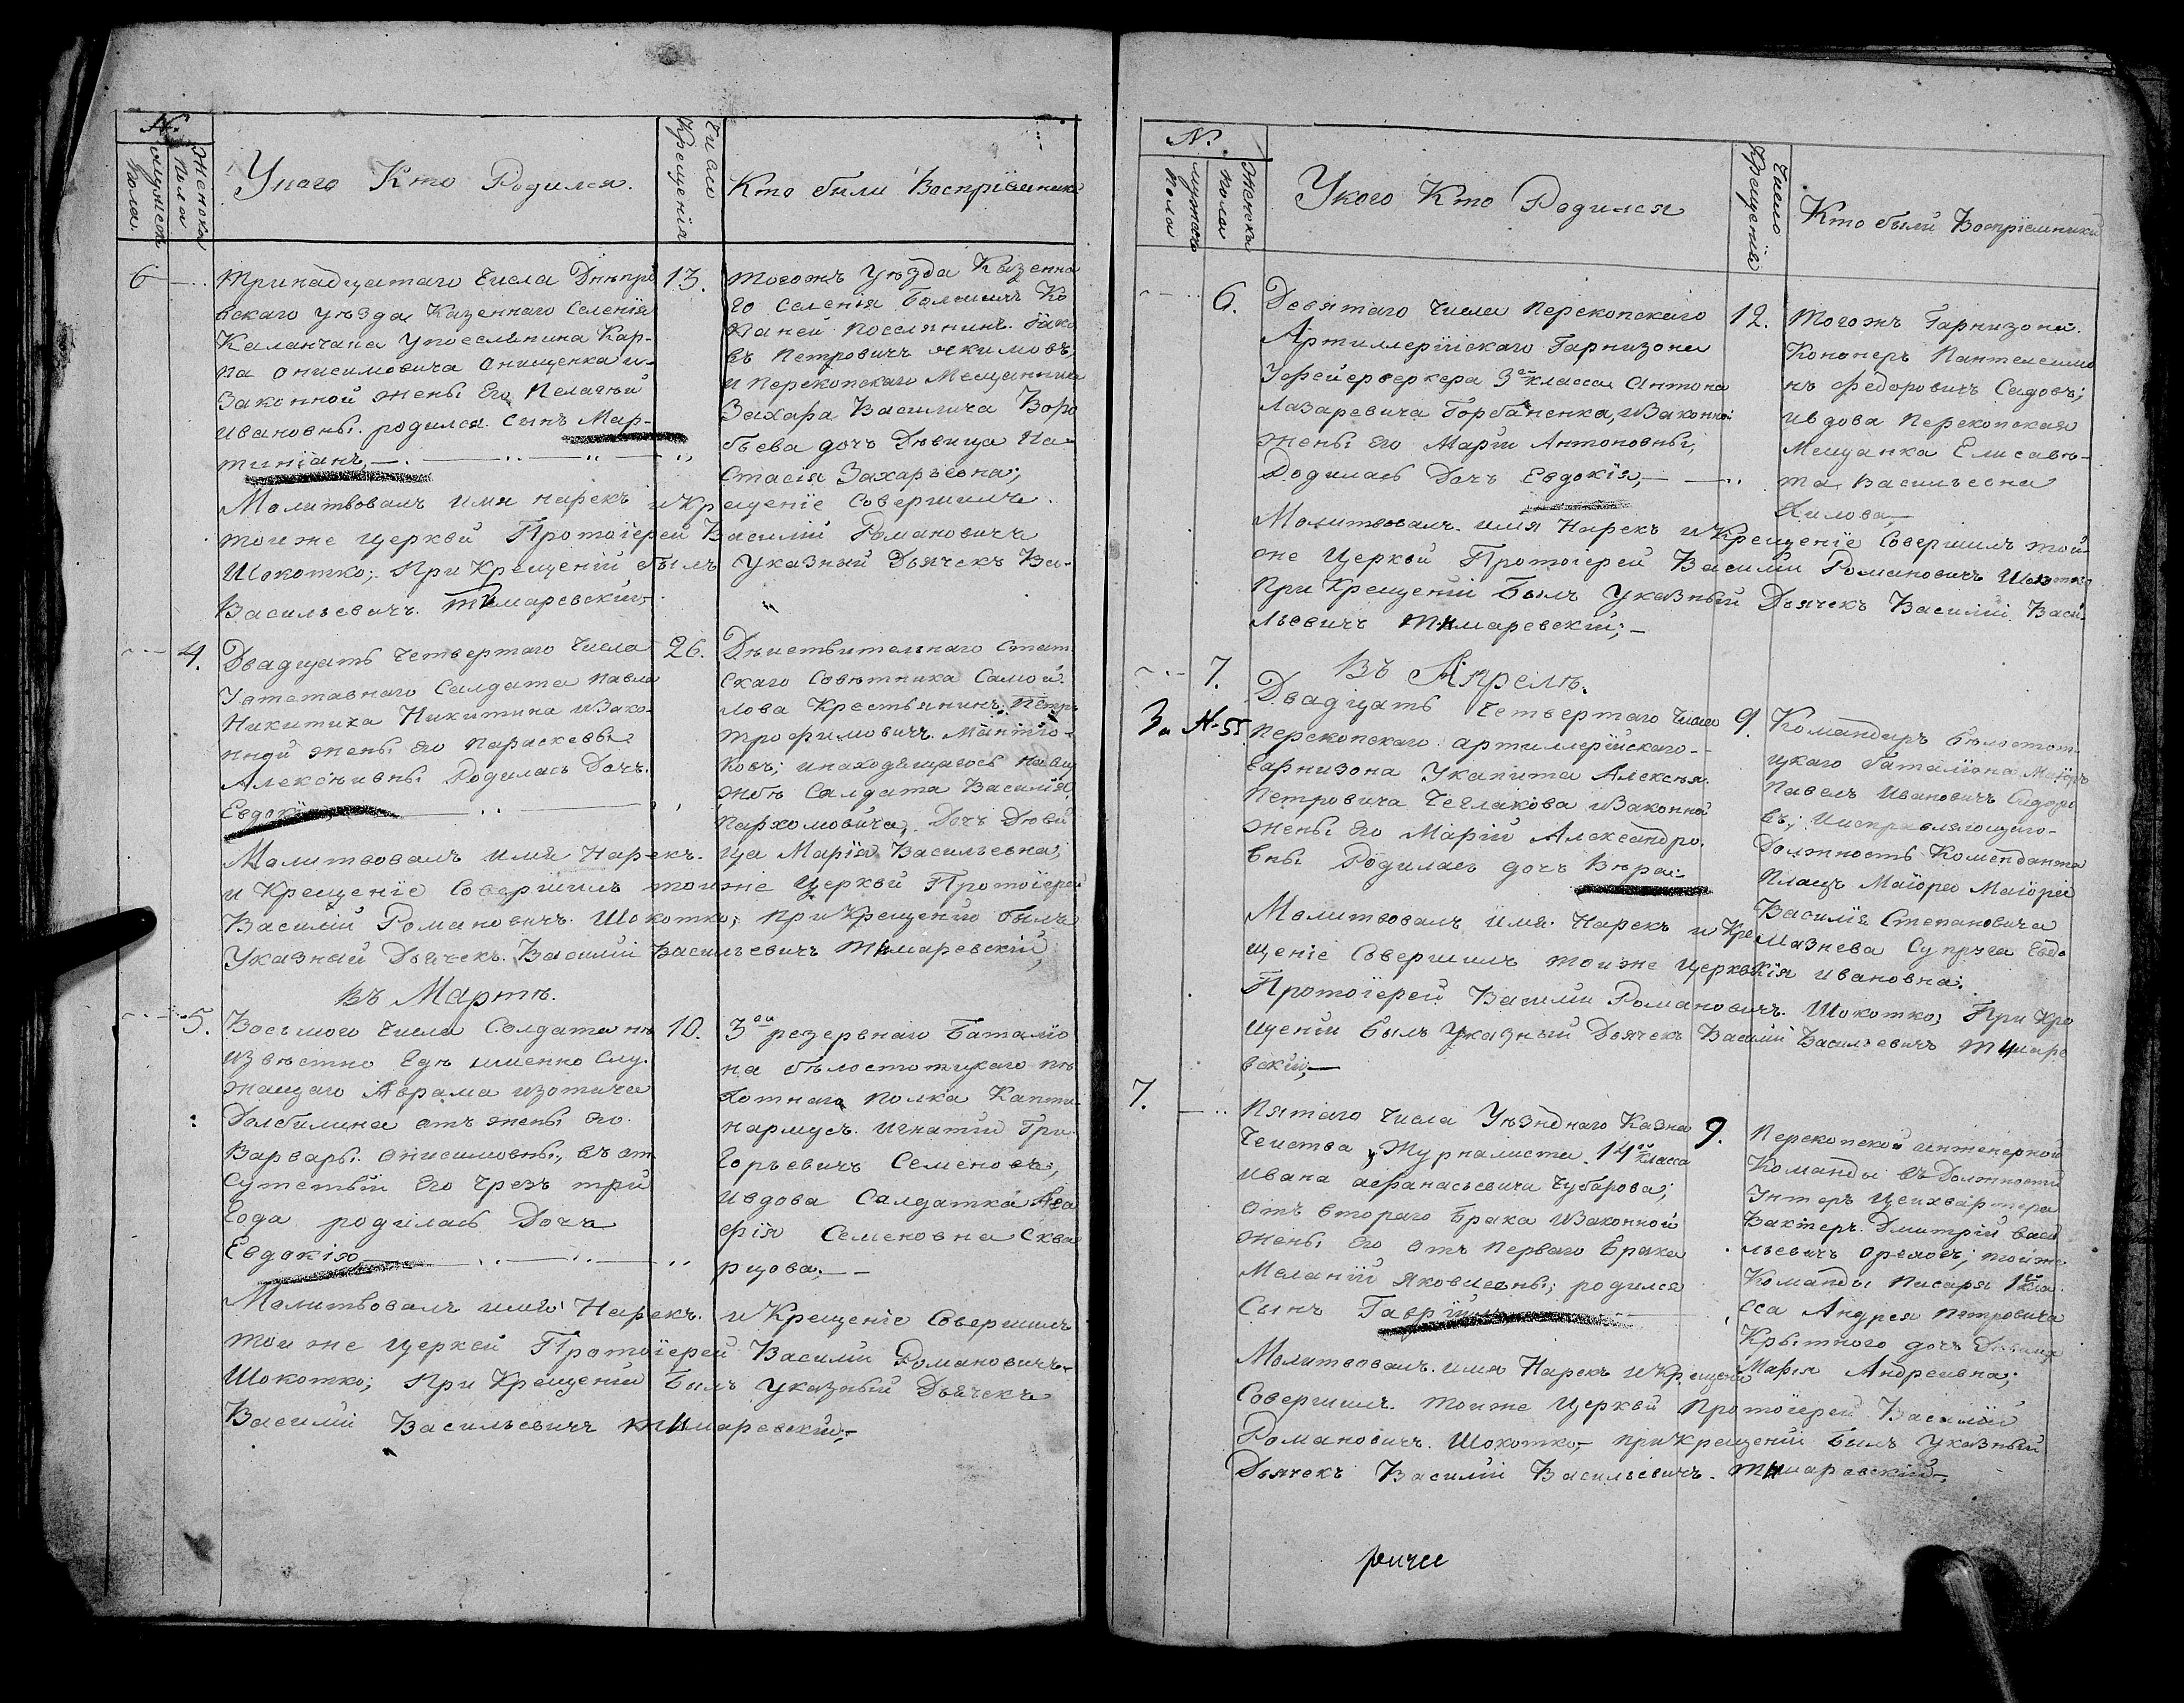 №.
мужеск
пола.
Женска
пола
Укого Кто Родился.
Число
Крещенія
Кто были Воспріемники
6
Тринадцатаго Числа Днепро
вскаго уѣзда Казеннаго Селенія
Каланчака упоселянина Кар-
па Онисимовича Онищенка и
Законной жены Его Пелагѣи
Ивановны. родился Сынъ Мар-
тиніанъ,
13.
Тогожъ уѣзда Казенна
го Селенія Большихъ Ко
паней Поселянинъ Іако
въ Петровичъ Якимовъ,
и Перекопскаго Мещанина
Захара Василича Воро
бьева дочь Дѣвица На-
стасія Захарьевна;
Молитвовалъ имя нарекъ и Крещеніе Совершилъ
тоиже Церкви Протоіерей Василій Романовичъ
Шокотко; При Крещеніи былъ Указный Дьячекъ Ва-
Васильевичъ. Тимаревскій;
4.
Двадцать Четвертаго Числа
Уотставнаго Салдата Павла
Никитича Никитина и Зако-
нной жены Его Параскевы
Алексѣивны Родилась Дочь.
Евдокія,
26.
Дѣиствительнаго Стат
скаго Совѣтника Самои
лова Крестьянинъ Петръ
Трофимовичъ.
ковъ; инаходящагось
жбѣ Салдата Василія
Пархомовича, Дочь Дѣви
ца Марія Васильевна;
Молитвовалъ имя Нарекъ.
и Крещеніе Совершилъ тоиже Церкви Протоіерей
Василій Романовичъ. Шокотко; При Крещеніи былъ
Указный Дьячекъ. Василій Васильевичъ Тимаревскій,
Въ Мартѣ.
5.
Восьмого Числа Солдата не
извѣстно Гдѣ именно Слу-
жащаго Аврама Изотича
Долбилина отъ жены Его
Варвары Онисимовны, въ от
сутствіи Его Чрезъ три
Года родилась Дочь
Евдокія
10.
3аи резервнаго Баталіо
на бѣлостотцкаго пѣ
хотнаго Полка Капти-
нармусъ. Игнатій Гри
Горьевичъ Семеновъ,
ивдова Салдатка Ага
фія Семеновна Сква
рцова;
Молитвовалъ имя Нарекъ. и Крещеніе Совершилъ
тои же Церкви Протоіерей Василій Романовичъ
Шокотко; При Крещеніи Былъ Указный Дьячекъ
Василій Васильевичъ Тимаревскій,
№.
мужеск
пола
Женска
пола
Укого Кто Родился
Число
Крещенія
Кто были Воспріемники
6.
Девятаго Числа Перекопскаго
Артиллерійскаго Гарнизона
Уфейерверкера 3го класса Антона
Лазаревича Горбаненка, и Законной
жены Его Маріи Антоновны,
Родилась Дочь Евдокія,
12.
Тогожъ Гарнизона.
Кононеръ Пантелеимо
нъ Федоровичъ Садовъ;
ивдова Перекопская
Мещанка Елисавѣ-
та Васильевна
Хилова,
Молитвовалъ имя Нарекъ и Крещеніе Совершилъ той-
же Церкви Протоіерей Василій Романовичъ Шокотко
При Крещеніи Былъ Указный Дьячекъ Василій Васи-
льевичъ Тимаревскій;
Въ Апрелѣ.
7.
За №55.
Двадцать Четвертаго Числа
Перекопскаго артиллерійскаго
Гарнизона Укапита Алексея
Петровича Чеглакова и Законной
жены Его Маріи Александро.
вны Родилась дочь Вера
9.
Командиръ бѣлостот
цкаго баталіона Маіоръ
Павелъ Ивановичъ Сидоро
въ; иисправляющаго
Должность Коменданта
Плацъ Маіора Маіора
Василія Степановича
Мазнева Супруга Евдо
кія Ивановна;
Молитвовалъ имя Нарекъ и Кре
щеніе Совершилъ тоиже Церкви
Протоіерей Василій Романовичъ. Шокотко; При Кре
щеніи Былъ Указный Дьячекъ Василій Васильевичъ Тимаре
вскій,
7.
Пятаго Числа Уѣзнднаго Казна
Чейства уЖурналиста 14го класса
Ивана Афанасьевича Чубарова;
отъ втораго Брака и Законной
жены Его отъ перваго Брака
Меланіи Яковлевны; родился
Сынъ Гавріилъ
9.
Перекопской инженерной
Команды въ Должности
Унтеръ Цеихвартера
Вахтеръ. Дмитрій Васи
льевичъ Орловъ; тойже
Команды Писаря 1го кла
сса Андрея Петровича
Крытного дочь Дѣвица
Марія Андреивна;
Молитвовалъ имя Нарекъ и Крещеніе
Совершилъ. тоиже Церкви Протоіерей Василій
Романовичъ. Шокотко, при Крещеніи Былъ Указный
Дьячекъ Василій Васильевичъ. Тимаревскій,